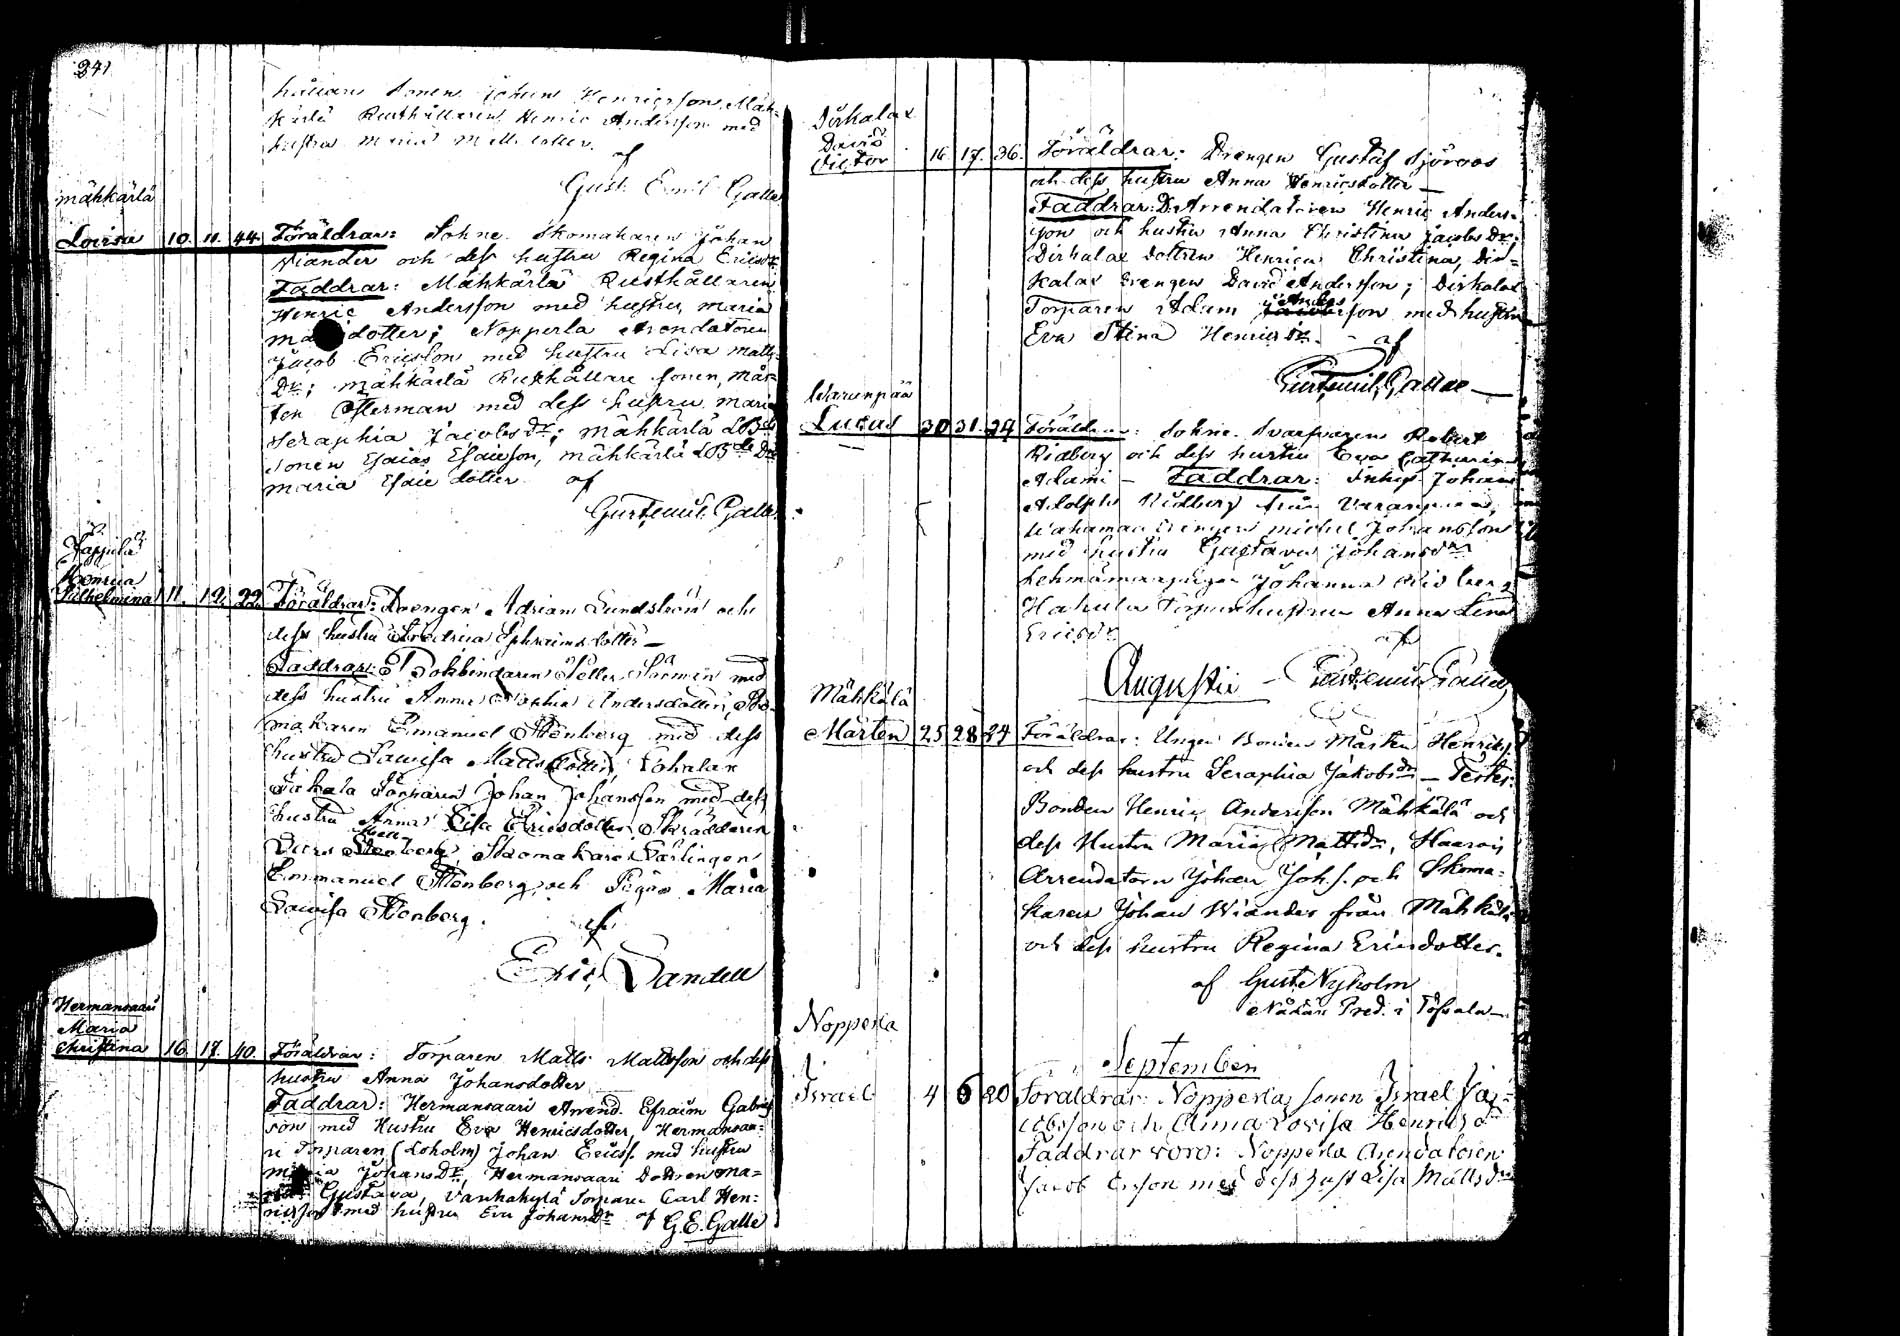 241
sonen Johan Henricsson, Mäh-
kärlä Rusthållaren Henric Andersson med
hustru Maria Matts dotter.
af
Gust. Emil Galle
Mähkärlä
Lovisa 10. 11. 44. Föräldrar: Sohne. Skomakaren Johan
Viander och dess hustru Regina Ericsdr
Faddrar: Mähkärlä Rusthållaren
Henric Andersson med hustru, Maria
Ma dotter; Nopperla Arendatoren
Jacob Ericsson med hustru Lisa Matts
Dr; Mähkärlä Rusthållare sonen, Mår-
ten Österman med dess hustru Maria
Seraphia Jacobsdr; Mähkärlä
sonen Esaias Esaiesson, Mähkärlä
Maria Esaie dotter af
Gust. Emil. Galle
Jappila
Henrica
Vilhelmina 11. 12. 22. Föräldrar: Drengen Adrian Lundström och
dess hustru Fredrica Ephraims dotter —
Faddrar: Bokbindaren Särmen med
dess hustru Anna Sophia Andersdotter, Sko-
makaren Emanuel Stenberg med dess
hustru Lawisa Mattsdotter, Lohalax
Torparen Johan Johansson med dess
hustru Anna Lisa Ericsdotter, Skräddaren
Stenberg, Skomakare Lärlingen
Emmanuel Stenberg, och Pigan Maria
Lawisa Stenberg.
af
Eric Sandell
Hermansaari
Maria
Christina 16. 17. 40. Föräldrar: Torparen Matts Mattsson och dess
hustru Anna Johansdotter
Faddrar: Hermansaari Arrend. Efraim Gabriels
son med Hustru Eva Henricsdotter, Hermansaa-
ri Torparen (Loholm) Johan Ericss. med hustru
Maria JohansDr, Hermansaari Dottren Ma-
ria Gustava, Vanhakylä Torparen Carl Hen-
ricsson med hustru Eva JohansDr af G. E. Galle
Dirhalax
David
Victor 16. 17. 36. Föräldrar: Drengen Gustaf Sjöroos
och dess hustru Anna Henricsdotter —
Faddrar: D. Arrendatoren Henric Anders-
son och hustru Anna Christina Jacobs Dr;
Dirhalax dottren Henrica Christina, Dir-
halax Drengen David Andersson; Dirhalax
Torparen Adam Anders
son med hustru
Eva Stina Henrics Dr. — af
Gust. Emil. Galle —
Waranpää
Lucas 30 31. 29 Föräldrar: Sohne. Svarfvaren Robert
Ridberg och dess hustru Eva Catharina
Adami — Faddrar: Inhys. Johan
Adolph Ridberg från Varanpää,
Drengen Michel Johansson
med hustru Gustava Johansdr
pigan Johanna Ridberg
Hakula Torparehustrun Anna Lena
Ericsdr
af
Augusti — Gust. Emil Galle
Mähkälä
Mårten 25 28 24 Föräldrar: Unga Bonden Mårten Henrikss.
och dess hustru Seraphia Jakobsdr — Testes:
Bonden Henric Andersson Mähkälä och
dess Hustru Maria Mattsdr, Haarois
Arrendatorn Johan Joh.s. och Skoma-
karen Johan Wiander från Mähkälä
och dess hustru Regina Ericsdotter.
af Gust. Nyholm
Nådårs Pred. i Töfsala —
Nopperla
September
Israel 4 6 20 Föräldrar: Nopperla, sonen Israel Ja-
cobsson och Anna Lovisa Henriksdr
Faddrar voro: Nopperla Arendatoren
Jacob Ersson med dess hust Lisa Mattsdr